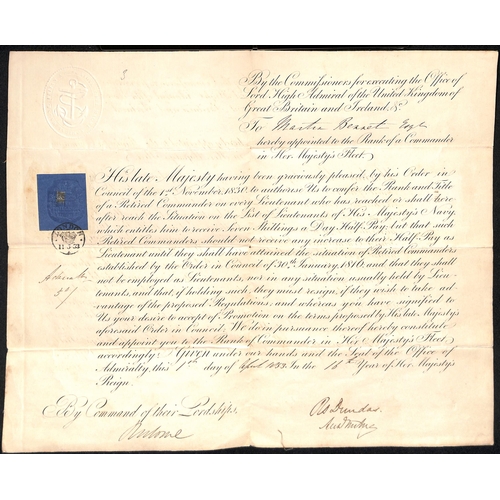 3
By the Commissioners for executing the Office of
Lord High Admiral of the United Kingdom of
Great Britain and Ireland, &c.
To Martin Bennet Esqr
hereby appointed to the Rank of a Commander
in Her Majesty's Fleet.
His late Majesty having been graciously pleased, by his Order in
Council of the 1st November, 1830, to authorise Us to confer the Rank and Title
of a Retired Commander on every Lieutenant who has reached or shall here-
after reach the Situation on the List of Lieutenants of His Majesty's Navy,
which entitles him to receive Seven Shillings a Day Half Pay; but that such
Retired Commanders should not receive any increase to their Half Pay as
Lieutenant until they shall have attained the situation of Retired Commanders
established by the Order in Council of 30th January, 1816, and that they shall
not be employed as Lieutenants, nor in any situation usually held by Lieu-
tenants, and that if holding such, they must resign, if they wish to take ad-
vantage of the proposed Regulations; and whereas you have signified to
Us your desire to accept of Promotion on the terms proposed by His late Majesty's
aforesaid Order in Council. We do in pursuance thereof hereby constitute
and appoint you to the Rank of Commander in Her Majesty's Fleet
accordingly. Given under our hands and the Seal of the Office of
Admiralty, this 1st day of April 1853. In the 16th Year of Her Majesty's
Reign.
By Command of their Lordships,